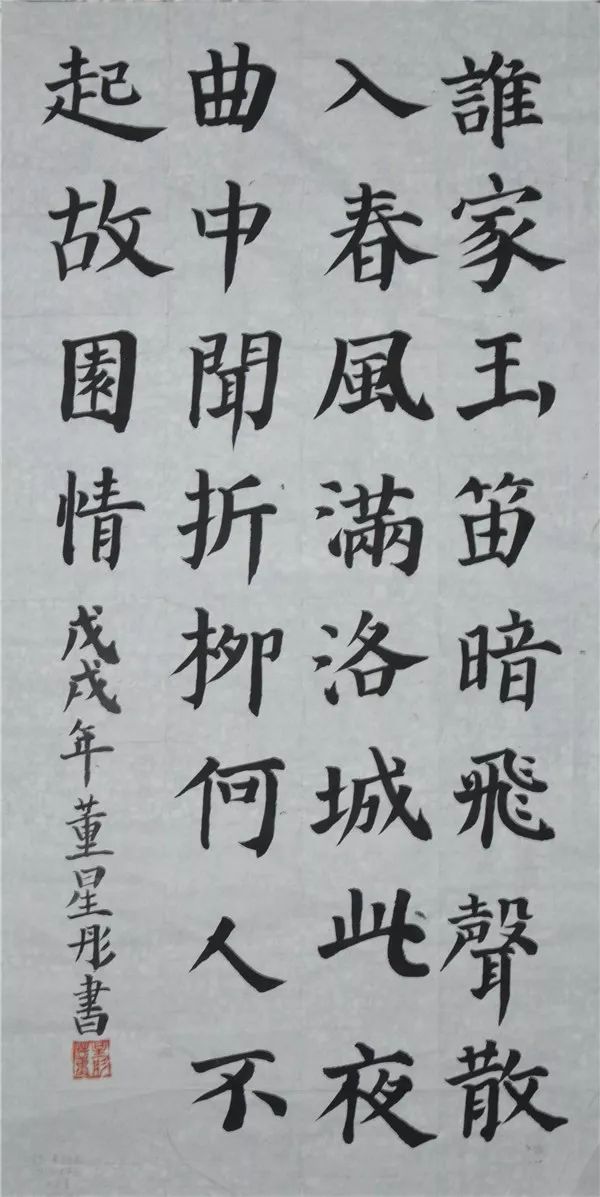 誰家玉笛暗飛聲散
入春風滿洛城此夜
曲中聞折柳何人不
起故園情
戊戌年董星彤書